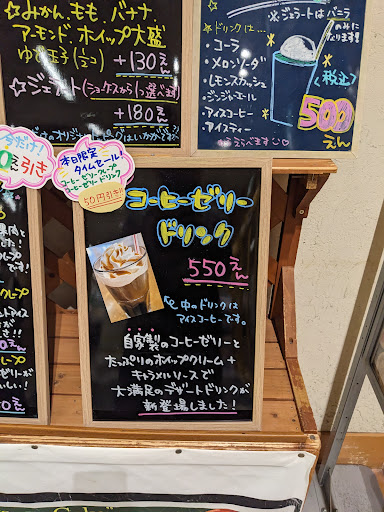 ☆みかん、もも、バナナ、
アーモンド、ホイップ大盛
ゆで玉子(1コ)
+130えん
☆ジェラート(ショーケースから1つ選べます)
+180えん
※ジェラートはバニラ
のみに
なります!
☆ドリンクは…
・コーラ
・メロンソーダ
・レモンスカッシュ
・ジンジャエール
・アイスコーヒー
・アイスティー
えらべます
(税込)
500
えん
今だけ!
引き
本日限定
タイムセール!
コーヒーゼリークレープ
コーヒーゼリードリンク
50円引き!
コーヒーゼリー
ドリンク
550えん
中のドリンクは
アイスコーヒーです。
自家製のコーヒーゼリーと
たっぷりのホイップクリーム+
キャラメルソースで
大満足のデザートドリンクが
新登場しました!